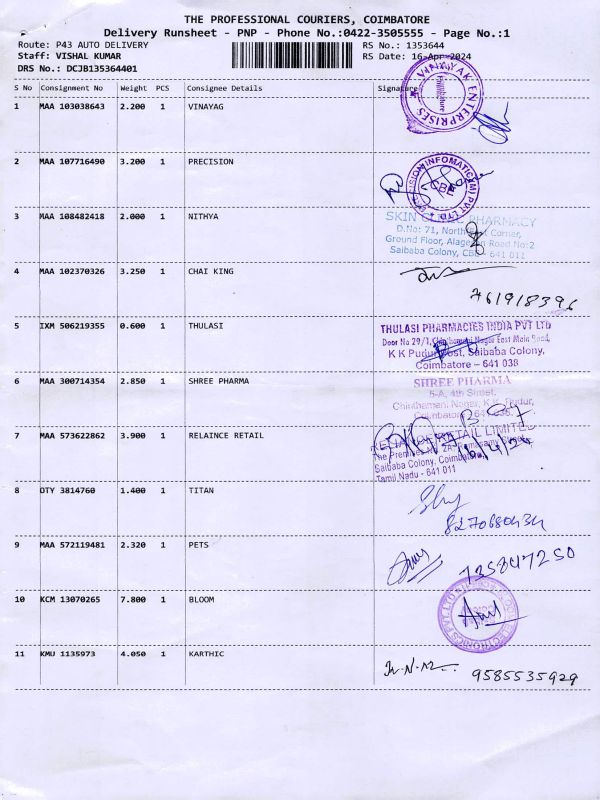 THE PROFESSIONAL COURIERS, COIMBATORE
Delivery Runsheet - PNP - Phone No.:0422-3505555 - Page No.:1
Route: P43 AUTO DELIVERY RS No.: 1353644
Staff: VISHAL KUMAR RS Date: 16-Apr-2024
DRS No.: DCJB135364401
S No Consignment No Weight PCS Consignee Details Signature
1 MAA 103038643 2.200 1 VINAYAG
VINAYAK ENTERPRISES
2 MAA 107716490 3.200 1 PRECISION
PRECISION INFOMATIC(M) PVT LTD
CBE
3 MAA 108482418 2.000 1 NITHYA
SKIN PHARMACY
D.No: 71, North East Corner,
Ground Floor, Road No:2
Saibaba Colony, CBE - 641 011
4 MAA 102370326 3.250 1 CHAI KING
761918396
5 IXM 506219355 0.600 1 THULASI
THULASI PHARMACIES INDIA PVT LTD
Door No 29/1, Chinthamani Nagar East Main Road,
K K Pudur Post, Saibaba Colony,
Coimbatore - 641 038
6 MAA 300714354 2.850 1 SHREE PHARMA
SHREE PHARMA
5-A, 4th Street,
Chinthamani Nagar, K.K. Pudur,
Coimbatore 641 038.
7 MAA 573622862 3.900 1 RELAINCE RETAIL
RETAIL LIMITED
The Premises No.
Saibaba Colony,
Tamil Nadu - 641 011
16/4/24
8 OTY 3814760 1.400 1 TITAN
9 MAA 572119481 2.320 1 PETS
7358947250
10 KCM 13070265 7.800 1 BLOOM
ELECTRONICS PVT LTD
11 KMU 1135973 4.050 1 KARTHIC
9585535929